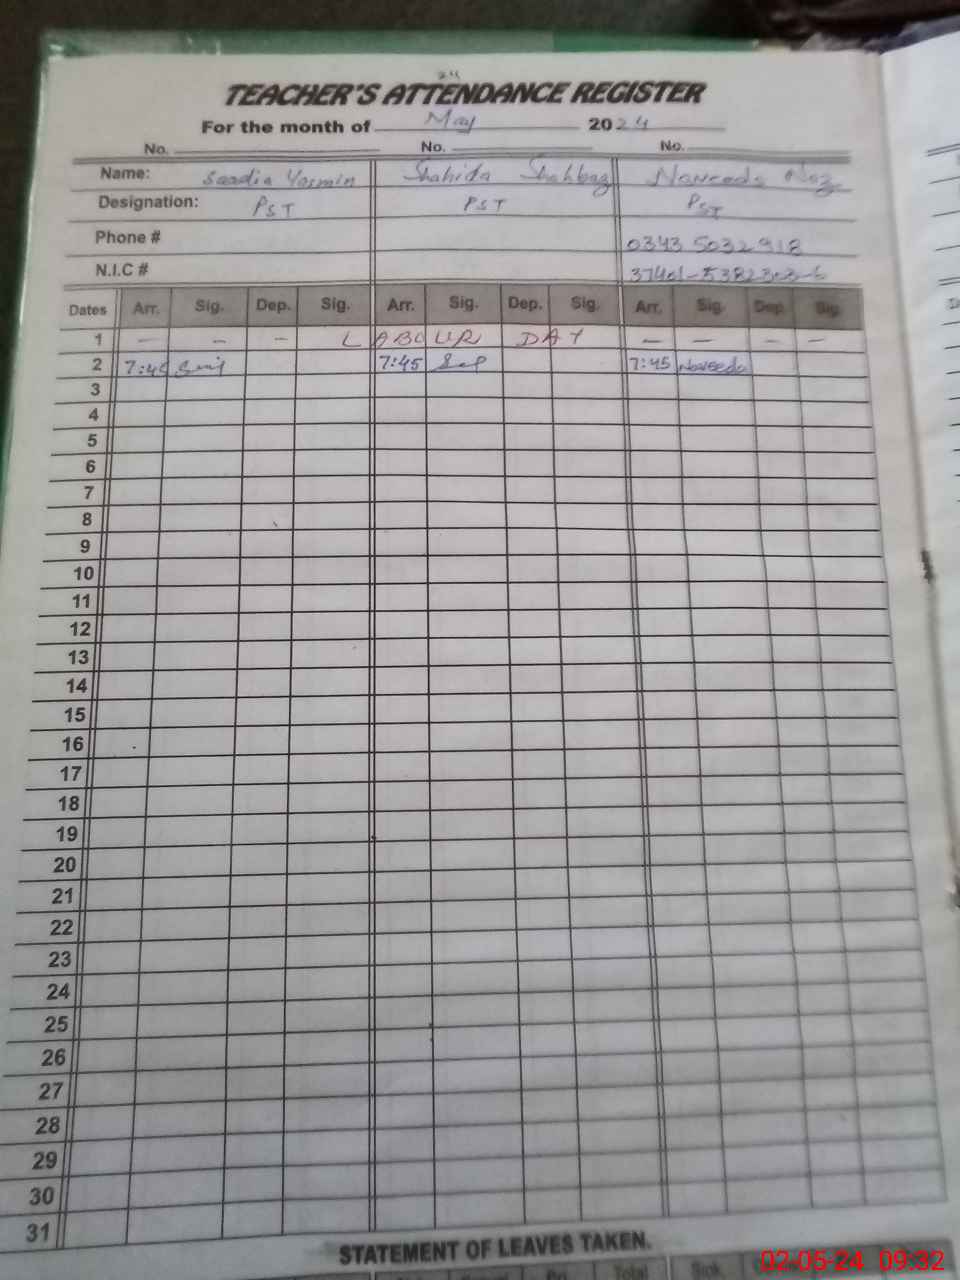 24
TEACHER'S ATTENDANCE REGISTER
For the month of May 2024
No. No. No.
Name: Saadia Yasmin Shahida Shahbaz Naveeda Naz
Designation: PST PST PST
Phone # 0343 5032 918
N.I.C # 37401-5382303-6
Dates Arr. Sig. Dep. Sig. Arr. Sig. Dep. Sig. Arr. Sig. Dep. Sig.
1 — — — LABOUR DAY — — — —
2 7:45 7:45 7:45 Naveeda
3
4
5
6
7
8
9
10
11
12
13
14
15
16
17
18
19
20
21
22
23
24
25
26
27
28
29
30
31
STATEMENT OF LEAVES TAKEN.
Total Sick
02-05-24 09:32